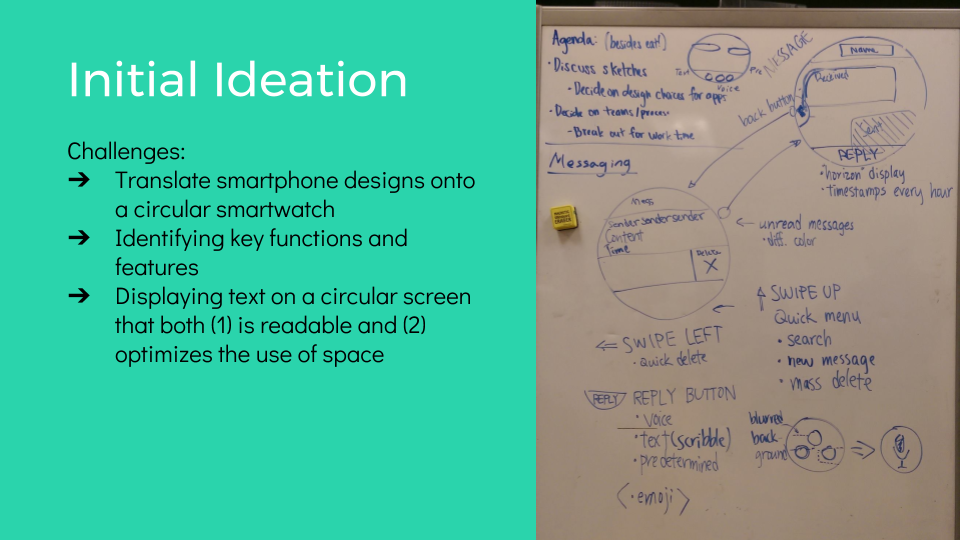 Initial Ideation
Challenges:
➔ Translate smartphone designs onto
a circular smartwatch
➔ Identifying key functions and
features
➔ Displaying text on a circular screen
that both (1) is readable and (2)
optimizes the use of space
Agenda: (besides eat!)
· Discuss sketches
- Decide on design choices for apps
· Decide on teams/process
- Break out for work time
Text
Voice
Pre
MESSAGE
Name
Received
Sent
REPLY
back button
· "horizon" display
· timestamps every hour
Messaging
Mess
Sender sender sender
Content
Time
Delete
X
unread messages
· diff. color
SWIPE LEFT
· quick delete
SWIPE UP
Quick menu
· search
· new message
· mass delete
REPLY REPLY BUTTON
· voice
· text (scribble)
· predetermined
<· emoji>
blurred
back
ground